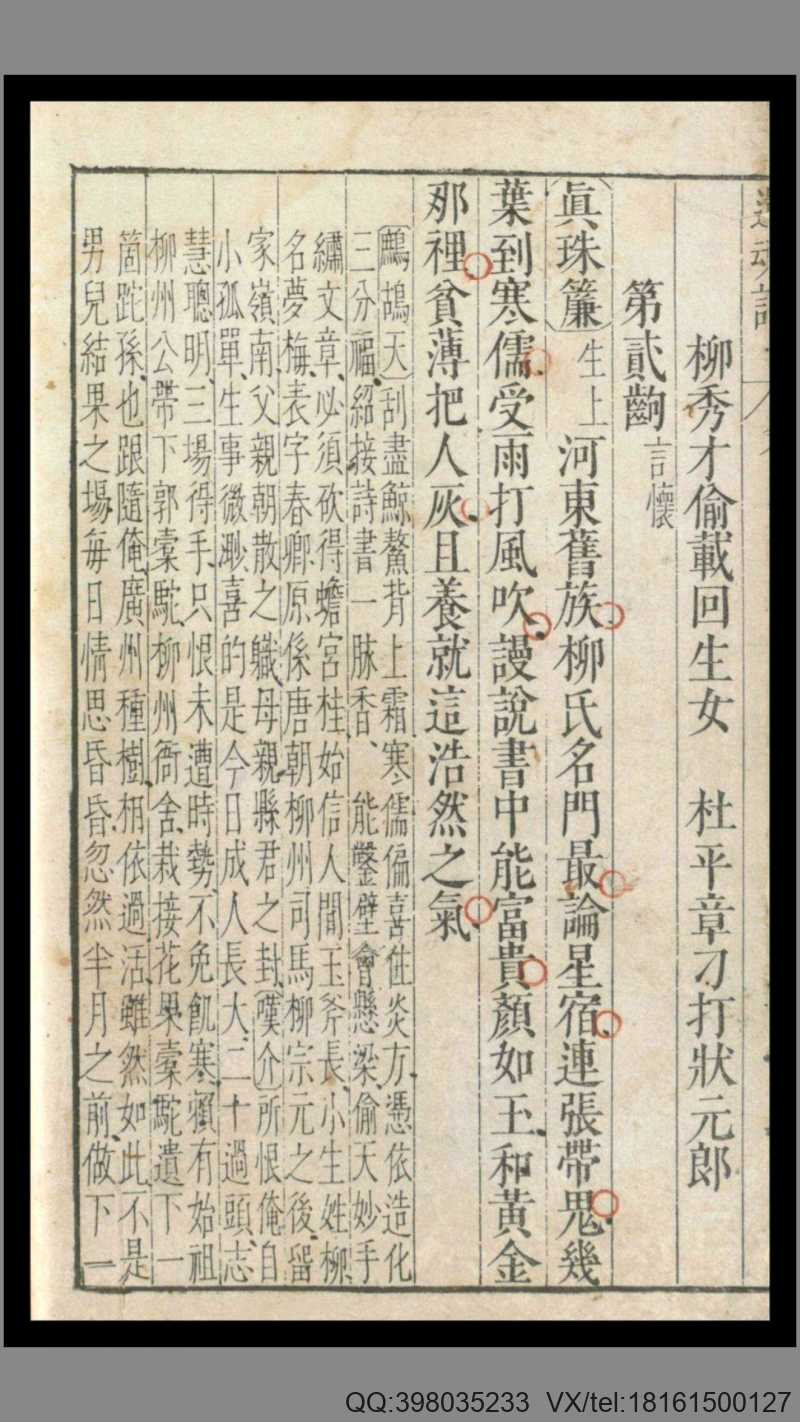 還魂記
柳秀才偷載回生女　杜平章刁打狀元郎
第貳齣 言懷
〔眞珠簾〕生上 河東舊族柳氏名門最論星宿連張帶鬼幾
葉到寒儒受雨打風吹謾說書中能富貴顏如玉和黃金
那裡貧薄把人灰且養就這浩然之氣
〔鷓鴣天〕刮盡鯨鰲背上霜寒儒偏喜住炎方憑依造化
三分福紹接詩書一脉香、能鑿壁會懸梁偷天妙手
繡文章必須砍得蟾宮桂始信人間玉斧長小生姓柳
名夢梅表字春卿原係唐朝柳州司馬柳宗元之後留
家嶺南父親朝散之職母親縣君之封〔嘆介〕所恨俺自
小孤單生事微渺喜的是今日成人長大二十過頭志
慧聰明三場得手只恨未遭時勢不免飢寒賴有始祖
柳州公帶下郭橐駝柳州衙舍栽接花果橐駝遺下一
箇跎孫也跟隨俺廣州種樹相依過活雖然如此不是
男兒結果之場每日情思昏昏忽然半月之前做下一
QQ:398035233 VX/tel:18161500127